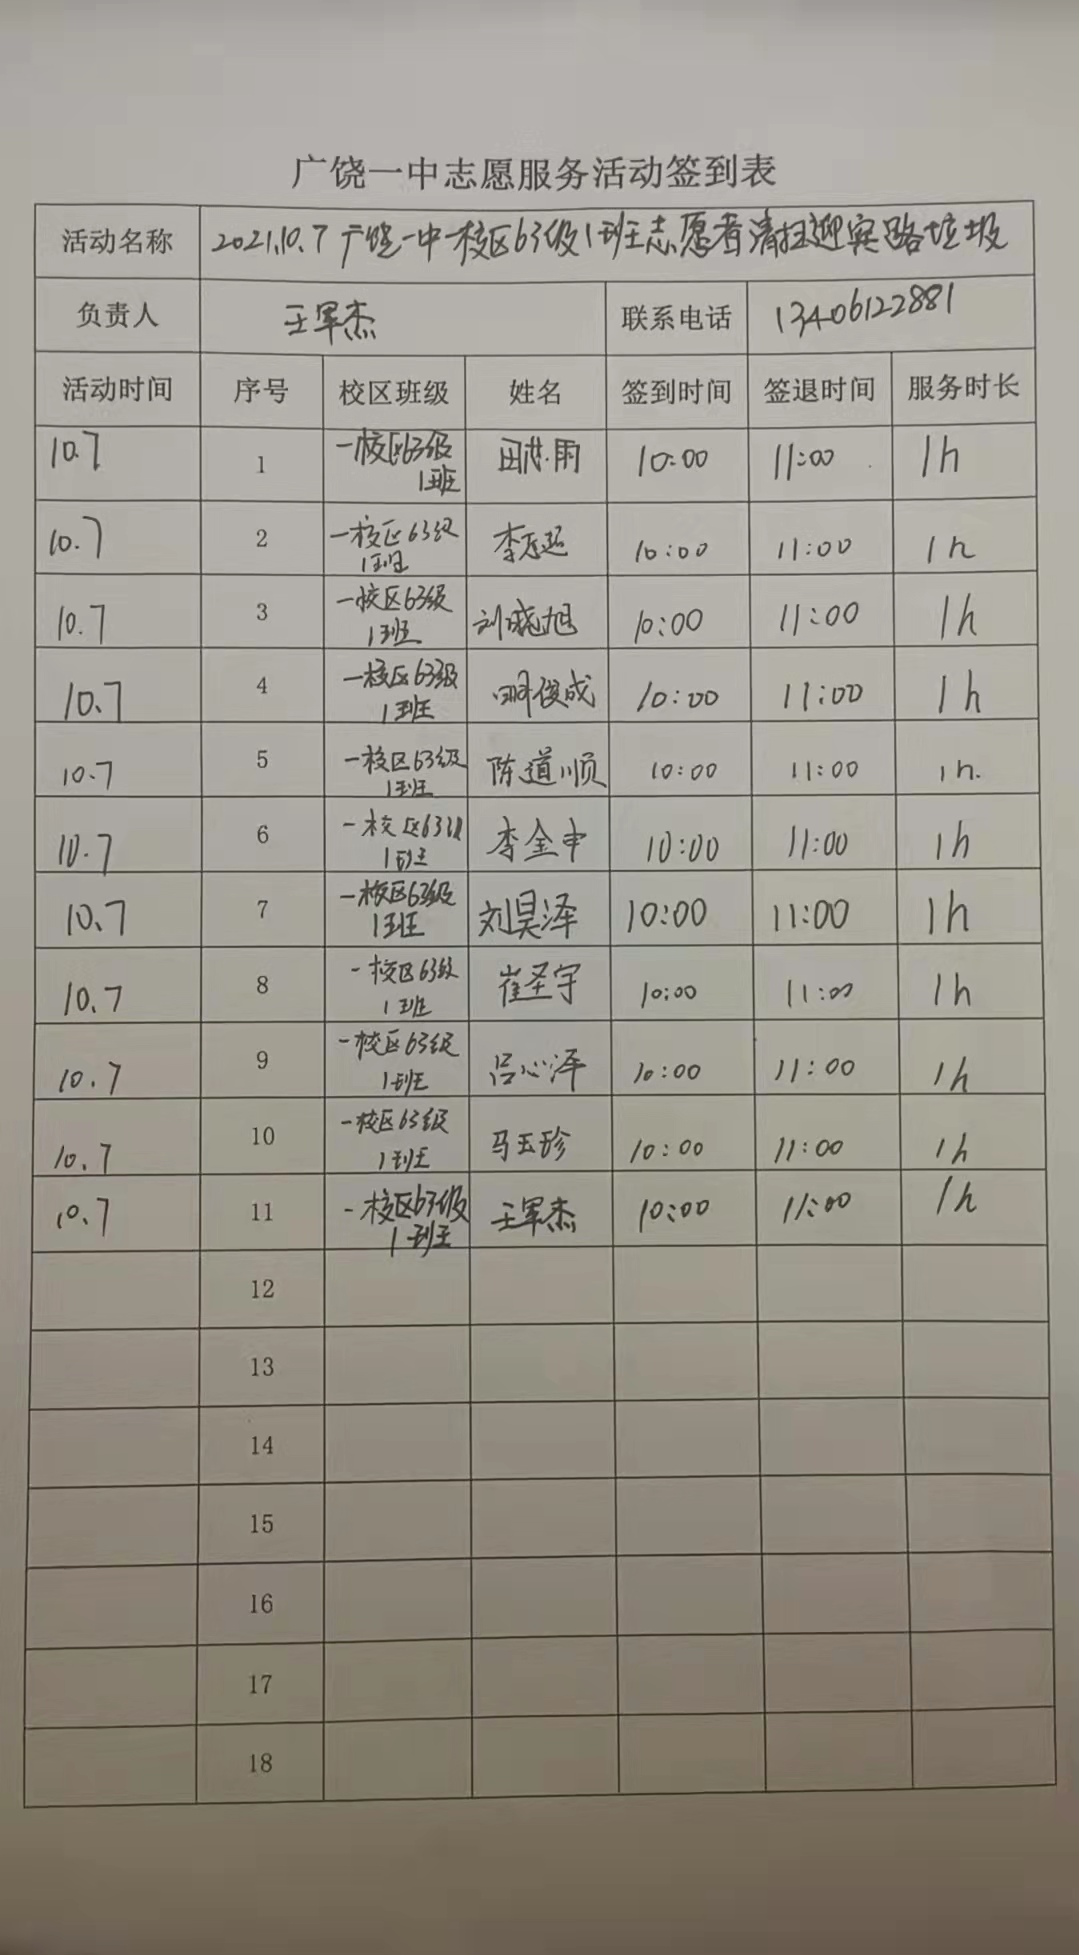 广饶一中志愿服务活动签到表
活动名称 2021.10.7广饶一中一校区63级1班志愿者清扫迎宾路垃圾
负责人 王军杰 联系电话 13406122881
活动时间 序号 校区班级 姓名 签到时间 签退时间 服务时长
10.7 1 一校区63级1班 10:00 11:00 1h
10.7 2 一校区63级1班 10:00 11:00 1h
10.7 3 一校区63级1班 刘晓旭 10:00 11:00 1h
10.7 4 一校区63级1班 10:00 11:00 1h
10.7 5 一校区63级1班 陈道顺 10:00 11:00 1h.
10.7 6 一校区63级1班 李金申 10:00 11:00 1h
10.7 7 一校区63级1班 刘昊泽 10:00 11:00 1h
10.7 8 一校区63级1班 崔圣宇 10:00 11:00 1h
10.7 9 一校区63级1班 吕心泽 10:00 11:00 1h
10.7 10 一校区63级1班 马玉珍 10:00 11:00 1h
10.7 11 一校区63级1班 王军杰 10:00 11:00 1h
12
13
14
15
16
17
18